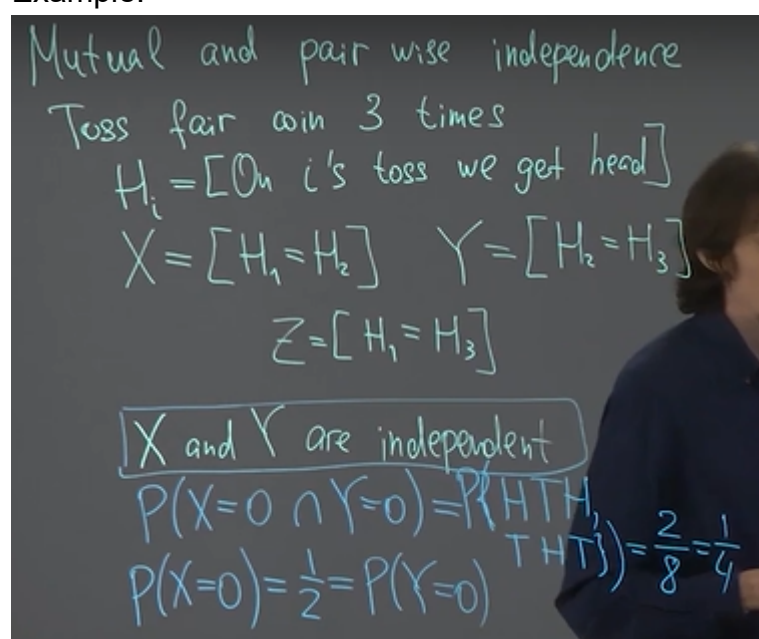 Example:
Mutual and pair wise independence
Toss fair coin 3 times
H_i = [On i's toss we get head]
X = [H_1 = H_2] Y = [H_2 = H_3]
Z = [H_1 = H_3]
X and Y are independent
P(X=0 ∩ Y=0) = P({HTH,
THT}) = 2/8 = 1/4
P(X=0) = 1/2 = P(Y=0)